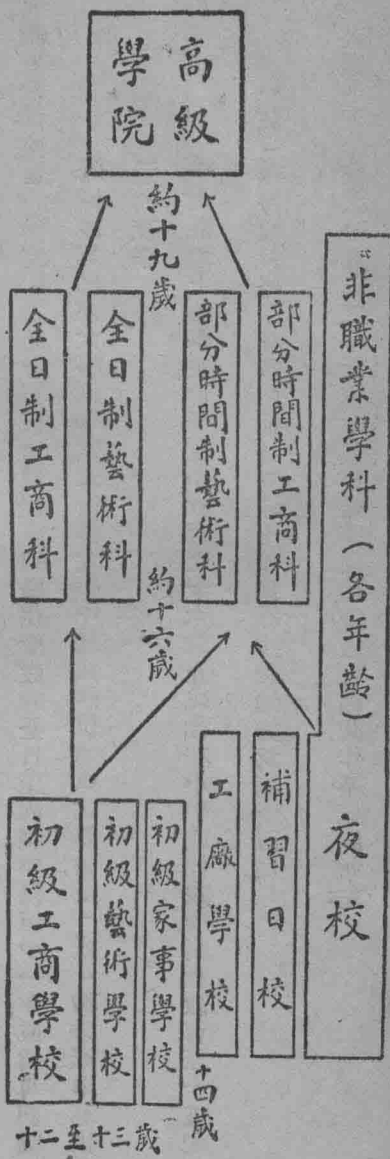 高級
學院
約十九歲
"非職業學科（各年齡）
夜校
部分時間制工商科
部分時間制藝術科
全日制藝術科
全日制工商科
約十六歲
補習日校
工廠學校
初級家事學校
初級藝術學校
初級工商學校
十四歲
十二至十三歲